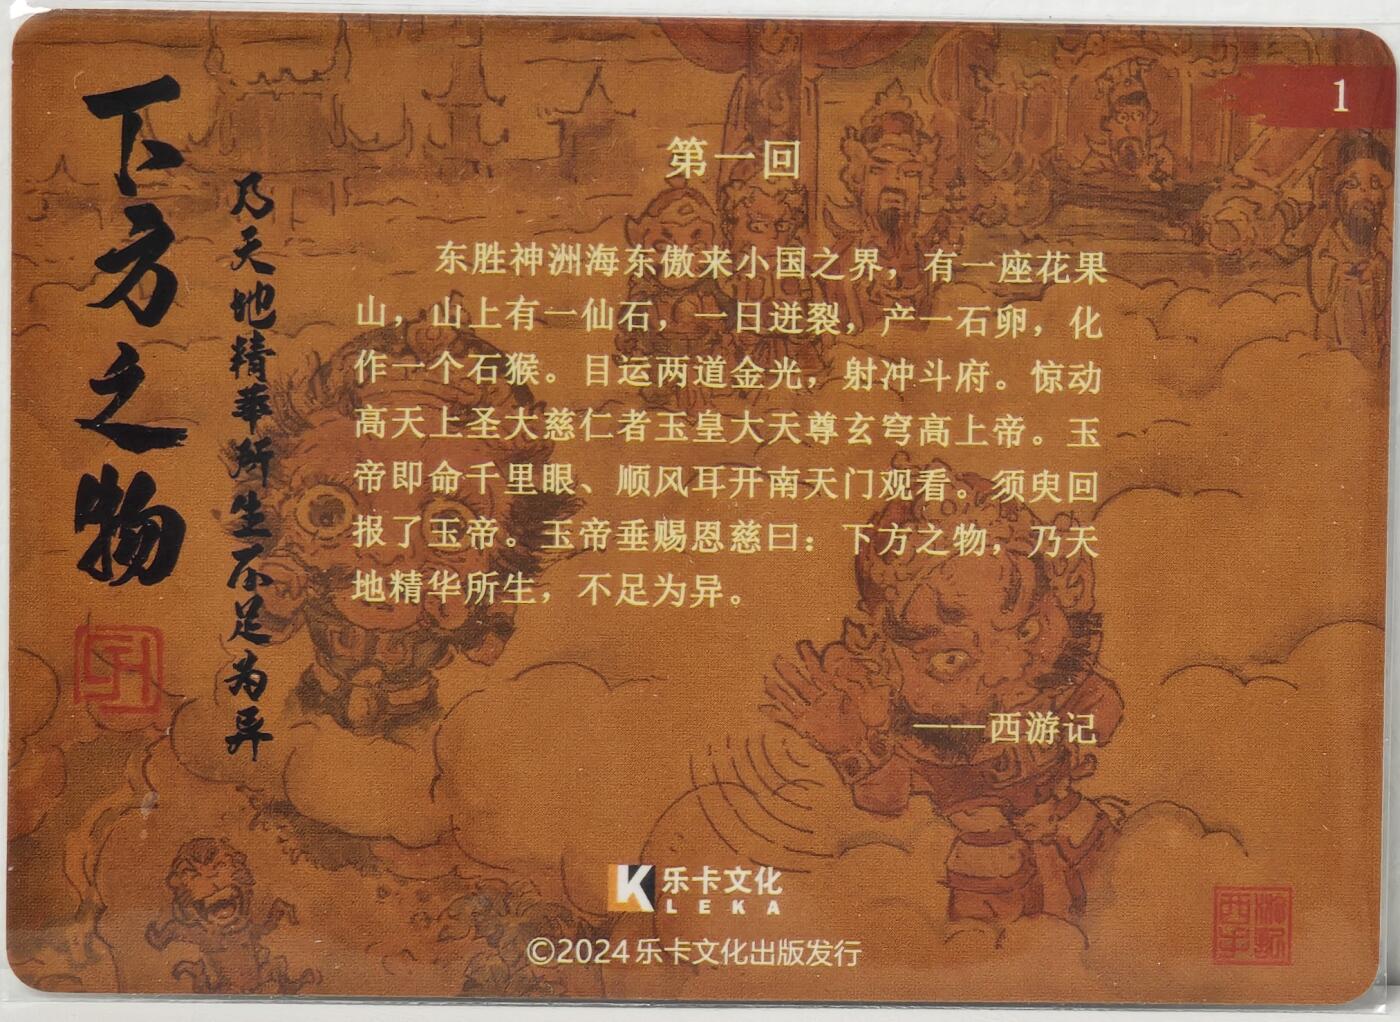 下方之物
乃天地精華所生不足为异
1
第一回
东胜神洲海东傲来小国之界，有一座花果
山，山上有一仙石，一日迸裂，产一石卵，化
作一个石猴。目运两道金光，射冲斗府。惊动
高天上圣大慈仁者玉皇大天尊玄穹高上帝。玉
帝即命千里眼、顺风耳开南天门观看。须臾回
报了玉帝。玉帝垂赐恩慈曰：下方之物，乃天
地精华所生，不足为异。
——西游记
K 乐卡文化
LEKA
©2024乐卡文化出版发行